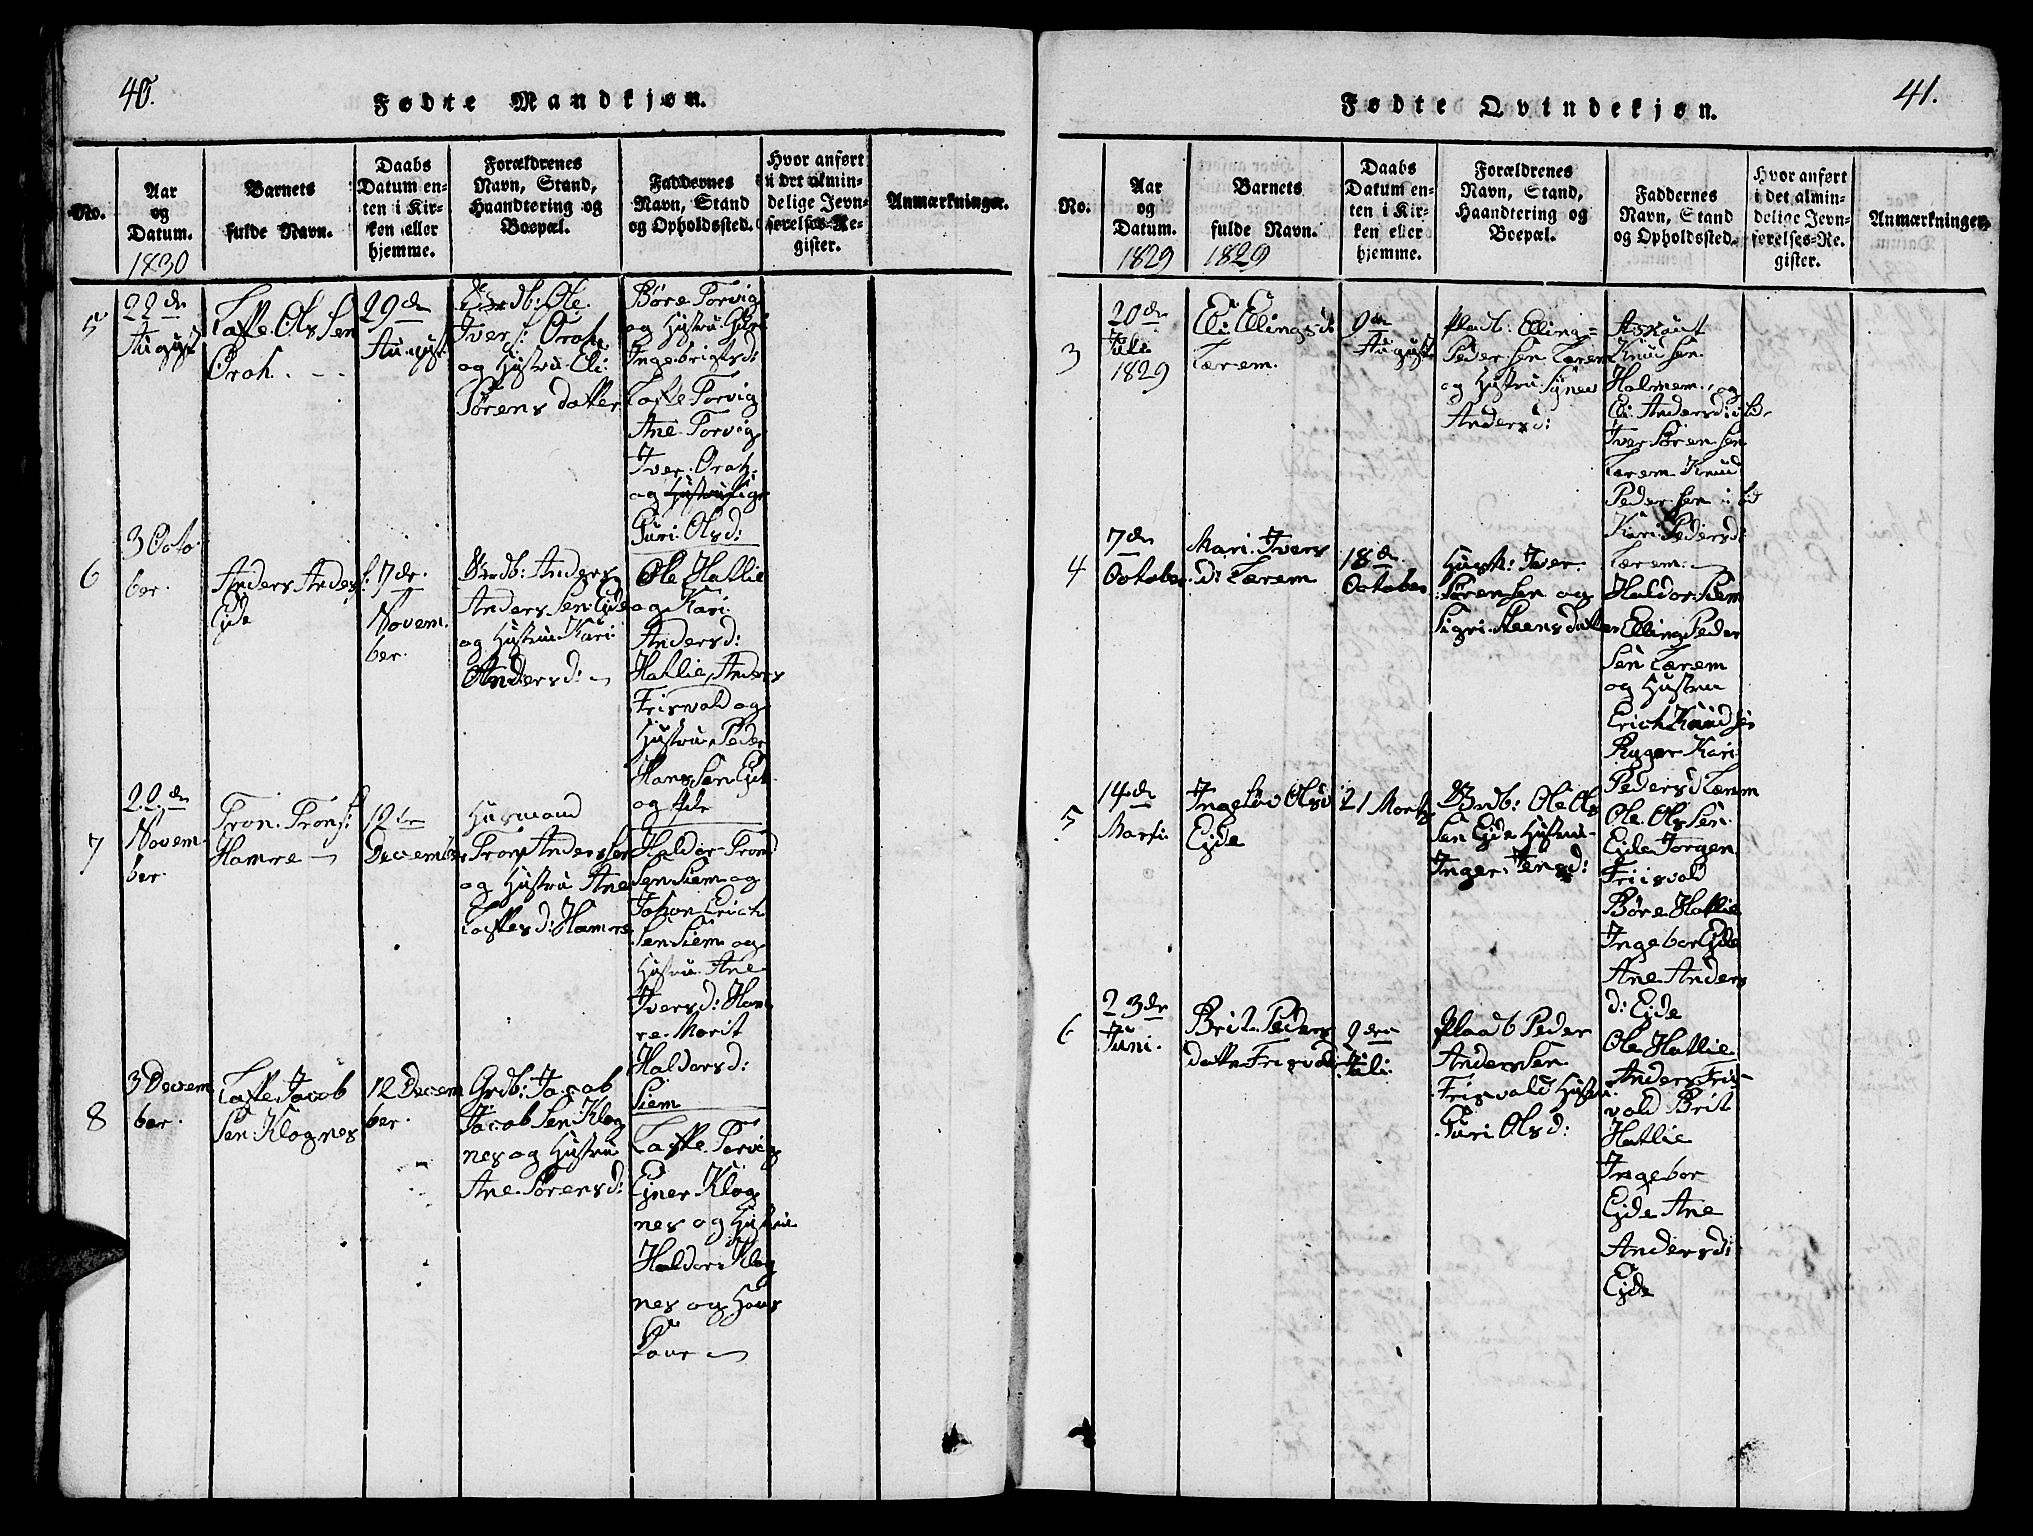 40.
Fødte Mandkjøn.
No.
Aar
og
Datum.
1830
Barnets
fulde Navn.
Daabs
Datum en-
ten i Kir-
ken eller
hjemme.
Forældrenes
Navn, Stand,
Haandtering og
Boepæl.
Faddernes
Navn, Stand
og Opholdssted.
Hvor anført
i det almin-
delige Jevn-
førelses-Re-
gister.
Anmærkninger.
5
22de
August
Ole Olssen
Orah.
29de
August
Grdb: Ole
Ivers: Orah
og Hustru Eli
Sørens datter
Børe Torvig
og Hustru Guri
Ingebrigtsd:
Torvig
Ane Torvig
Iver Orah:
og
Guri Olsd:
6
3 Octo
ber.
Anders Anders:
Ejde
7de
Novem
ber.
Grdb: Anders
Anderssen Ejde
og Hustru Kari
Andersd:
Ole Hatlie
og Kari
Andersd:
Hatlie, Anders
Frisvold og
Hustru Peder
Hanssen Ejde
og
7
22de
Novem
ber.
Tron Trons:
Hamre
12te
December
Husmand
Tron Anderssen
og Hustru Ane
d: Hamre
Haldor Trond
Sen Siem og
Johan Erich
Sen Siem og
Hustru Ane
Iversd: Ham
re Marit
Haldorsd:
Siem
8
3 Decem
ber.
Jacob
Sen Klognes
12 Decem
ber.
Grdb: Jacob
Jacob Sen Klog
nes og Hustru
Ane Sørensd:
Torvig
Ejner Klog
nes og Hustru
Haldor Klog
nes og Hans
41.
Fødte Qvindekjøn.
No.
Aar
og
Datum.
1829
Barnets
fulde Navn.
1829
Daabs
Datum en-
ten i Kir-
ken eller
hjemme.
Forældrenes
Navn, Stand,
Haandtering og
Boepæl.
Faddernes
Navn, Stand
og Opholdssted.
Hvor anført
i det almin-
delige Jevn-
førelses-Re-
gister.
Anmærkninger.
3
20de
Juli
1829
Eli Ellingsd:
Lærem.
9de
August
Plads: Elling
Peder Sen Lærem
og Hustru Synev
Andersd:
Knud Sen
Holmem, og
Eli Andersd:
Iver Søren Sen
Lærem Knud
Peder Sen
Kari Pedersd:
Lærem.
4
7de
October
Mari Ivers
d: Lærem
18de
October
Husm: Iver
Sørensen og
Sigri Steensdatter
Haldor Siem
Elling Peder
Sen Lærem
og Hustru
Erich Knudsen
Kari
Pedersd Lærem
5
14de
Marti
Ingeløv Olsd:
Ejde
21 Marti
Grdb: Ole Ols
Sen Ejde Hustru
Inger Jensd:
Ole Ols Sen
Ejde Jorgen
Friisvold
Børe Hatlie
Ingebor Ejde
Ane Anders
d: Ejde
6
23de
Juni.
Brit Peders
datter Frisvold
9de
Juli
Plads Peder
Andersen
Frisvold Hustru
Guri Olsd:
Ole Hatlie
Anders Fris
vold Brit
Hatlie
Ingebor
Ejde Ane
Andersd:
Ejde